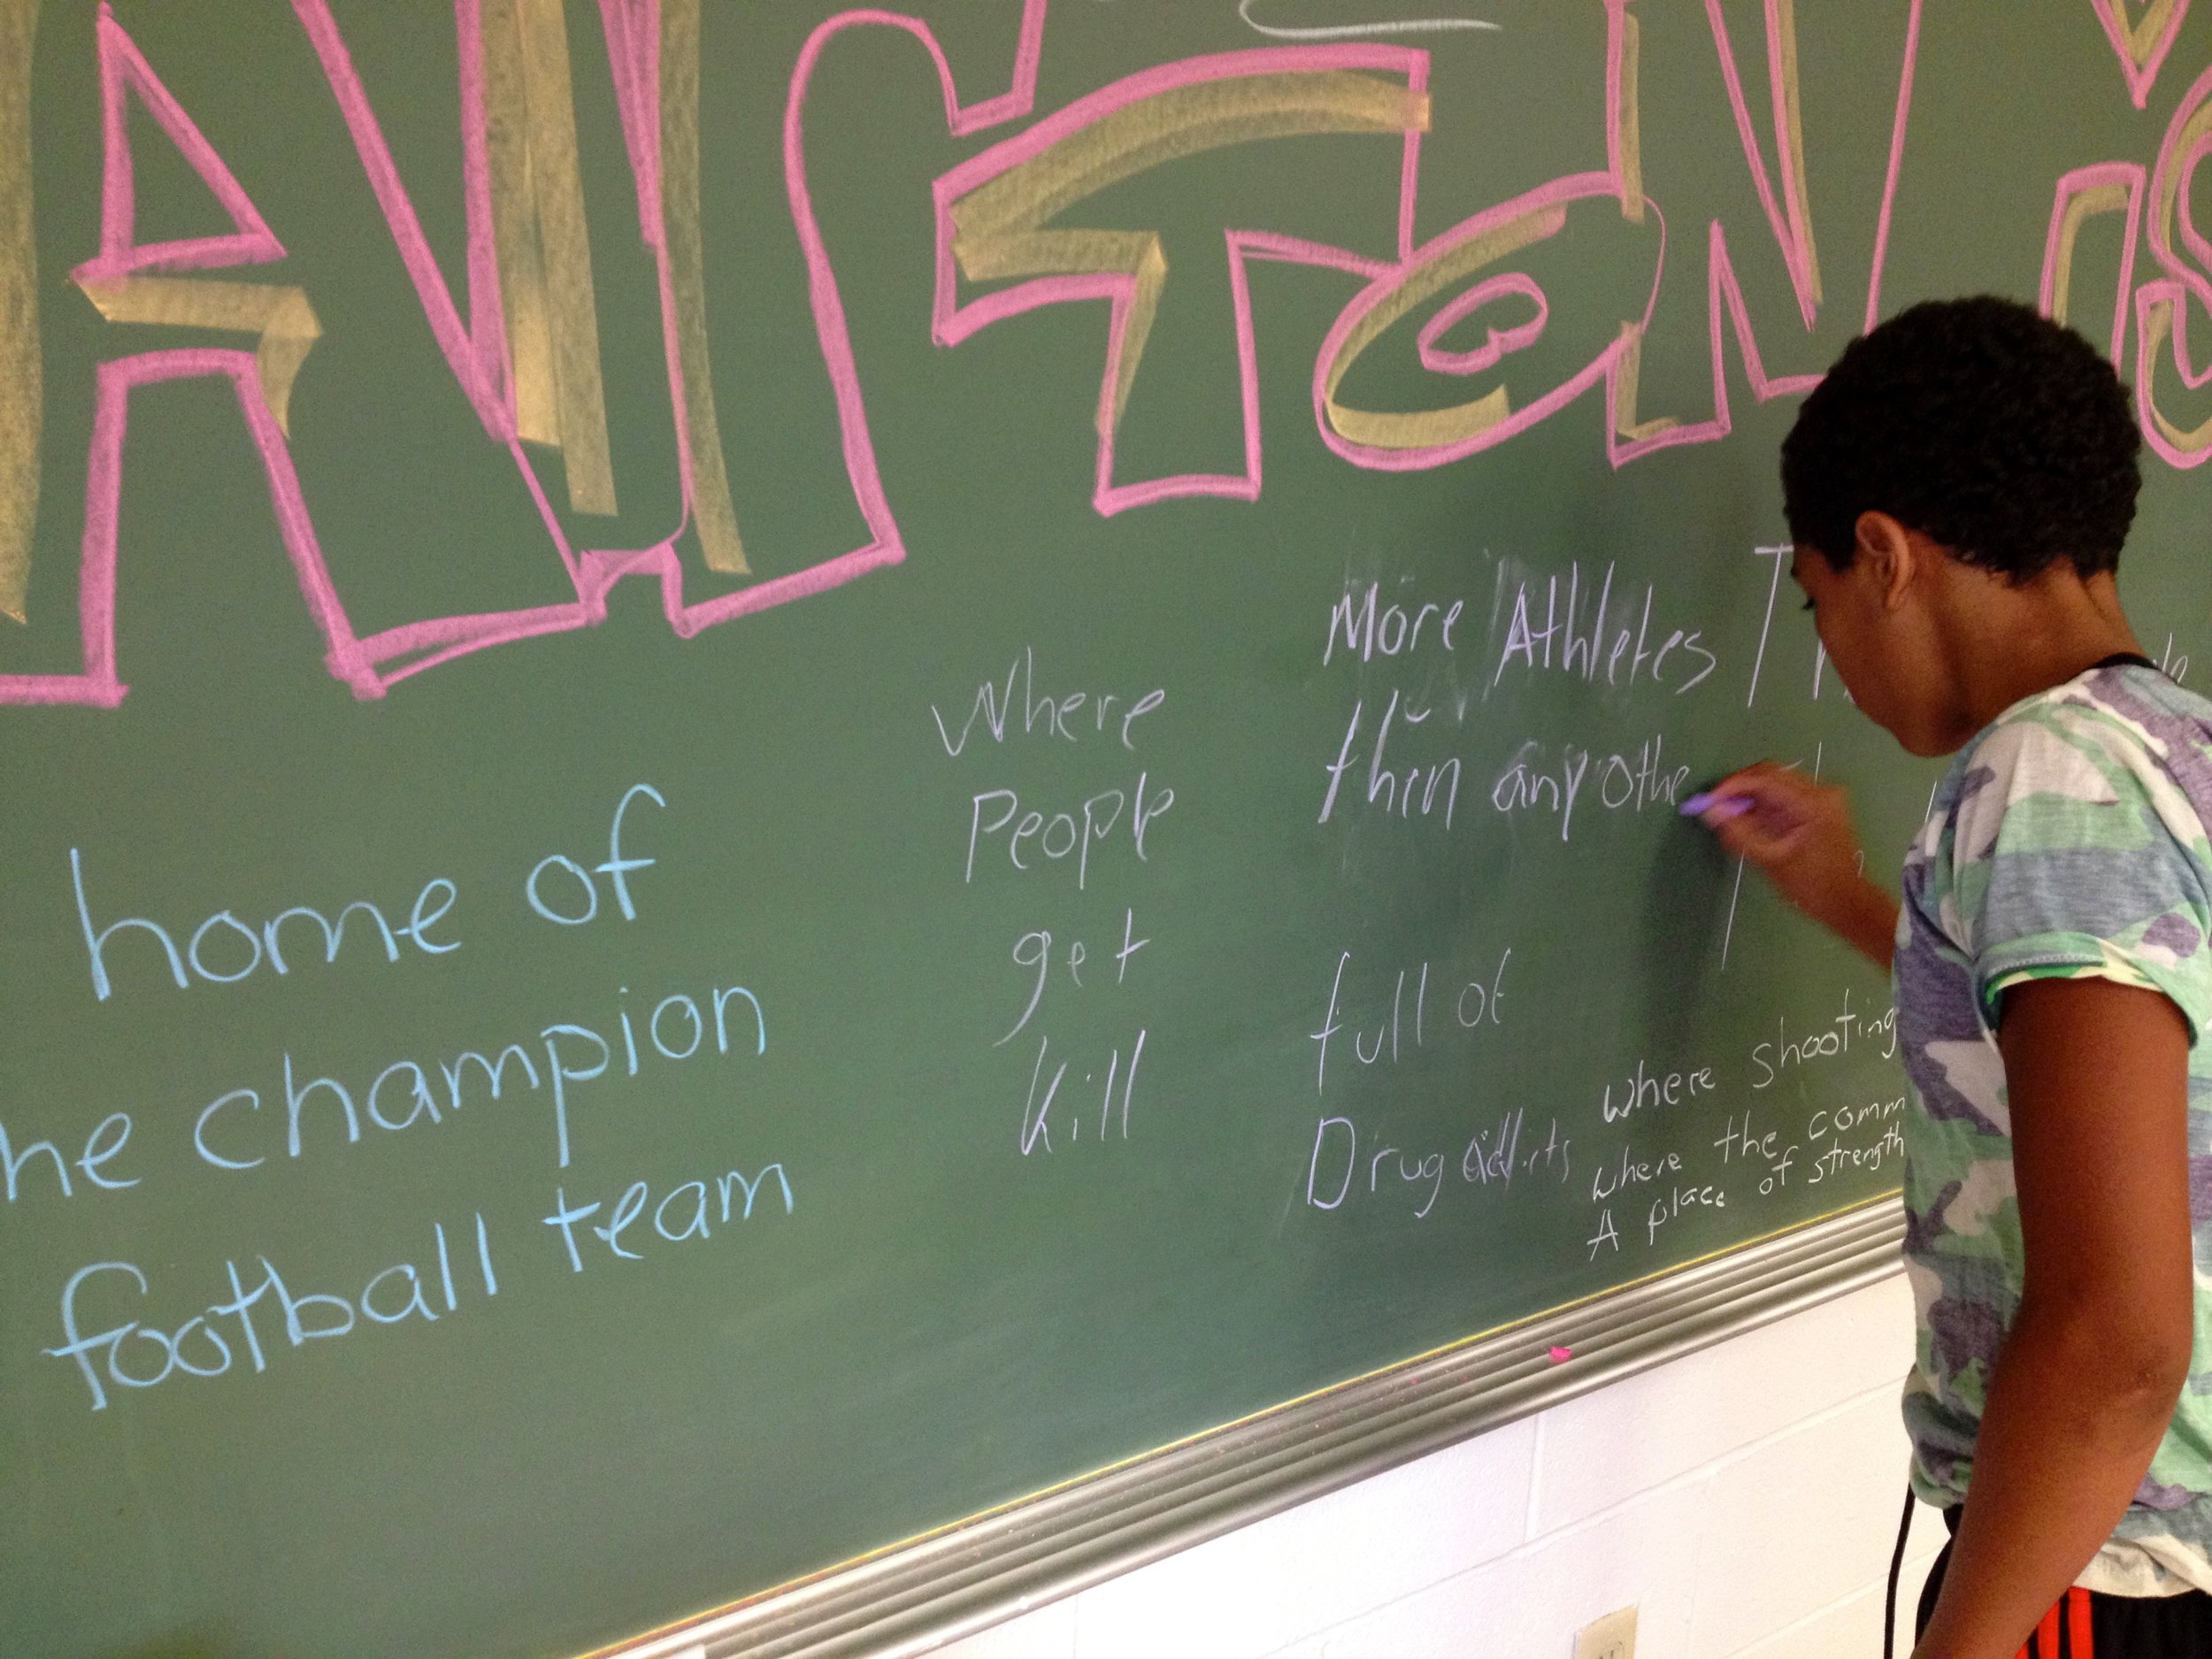 is
home of
he champion
football team
Where
People
get
Kill
More Athletes
then any othe
full of
Drug addicts
where shooting
where the comm
A place of strength